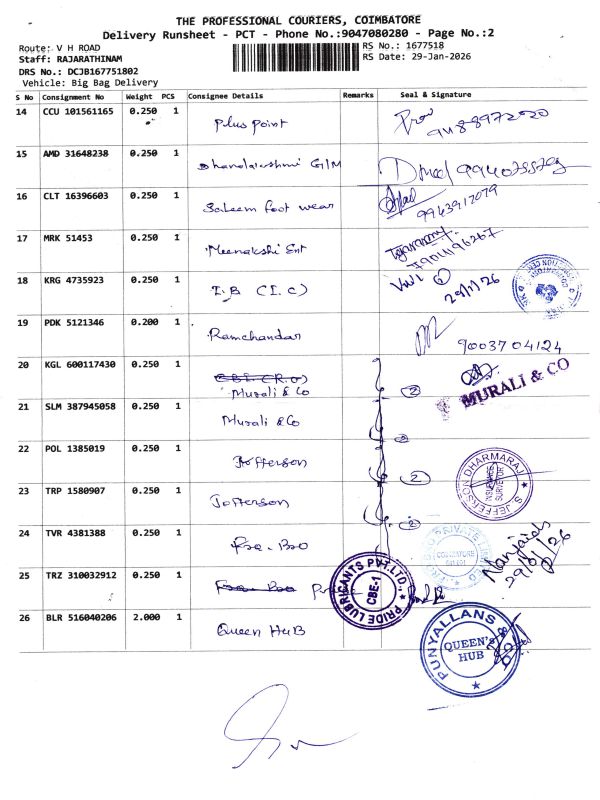 THE PROFESSIONAL COURIERS, COIMBATORE
Delivery Runsheet - PCT - Phone No.:9047080280 - Page No.:2
Route: V H ROAD
Staff: RAJARATHINAM
DRS No.: DCJB167751802
Vehicle: Big Bag Delivery
RS No.: 1677518
RS Date: 29-Jan-2026
S No Consignment No Weight PCS Consignee Details Remarks Seal & Signature
14 CCU 101561165 0.250 1 Plus Point 9488972020
15 AMD 31648238 0.250 1 Dhanalakshmi G/M
16 CLT 16396603 0.250 1 Saleem foot wear 9943917079
17 MRK 51453 0.250 1 Meenakshi Ent
18 KRG 4735923 0.250 1 I.B (I.C) 29/1/26
19 PDK 5121346 0.200 1 Ramchandar 9003704124
20 KGL 600117430 0.250 1 Murali & Co 2 MURALI & CO
21 SLM 387945058 0.250 1 Murali & Co
22 POL 1385019 0.250 1 Jofferson 2 S. JEFFERSON DHARMARAJ INSURANCE SURVEYOR
23 TRP 1580907 0.250 1 Jofferson 2
24 TVR 4381388 0.250 1 Fra. Bro 29/01/26
25 TRZ 310032912 0.250 1 PRIDE LUBRICANTS PVT.LTD., CBE-1
26 BLR 516040206 2.000 1 Queen HuB PUNYALLANS QUEEN's HUB